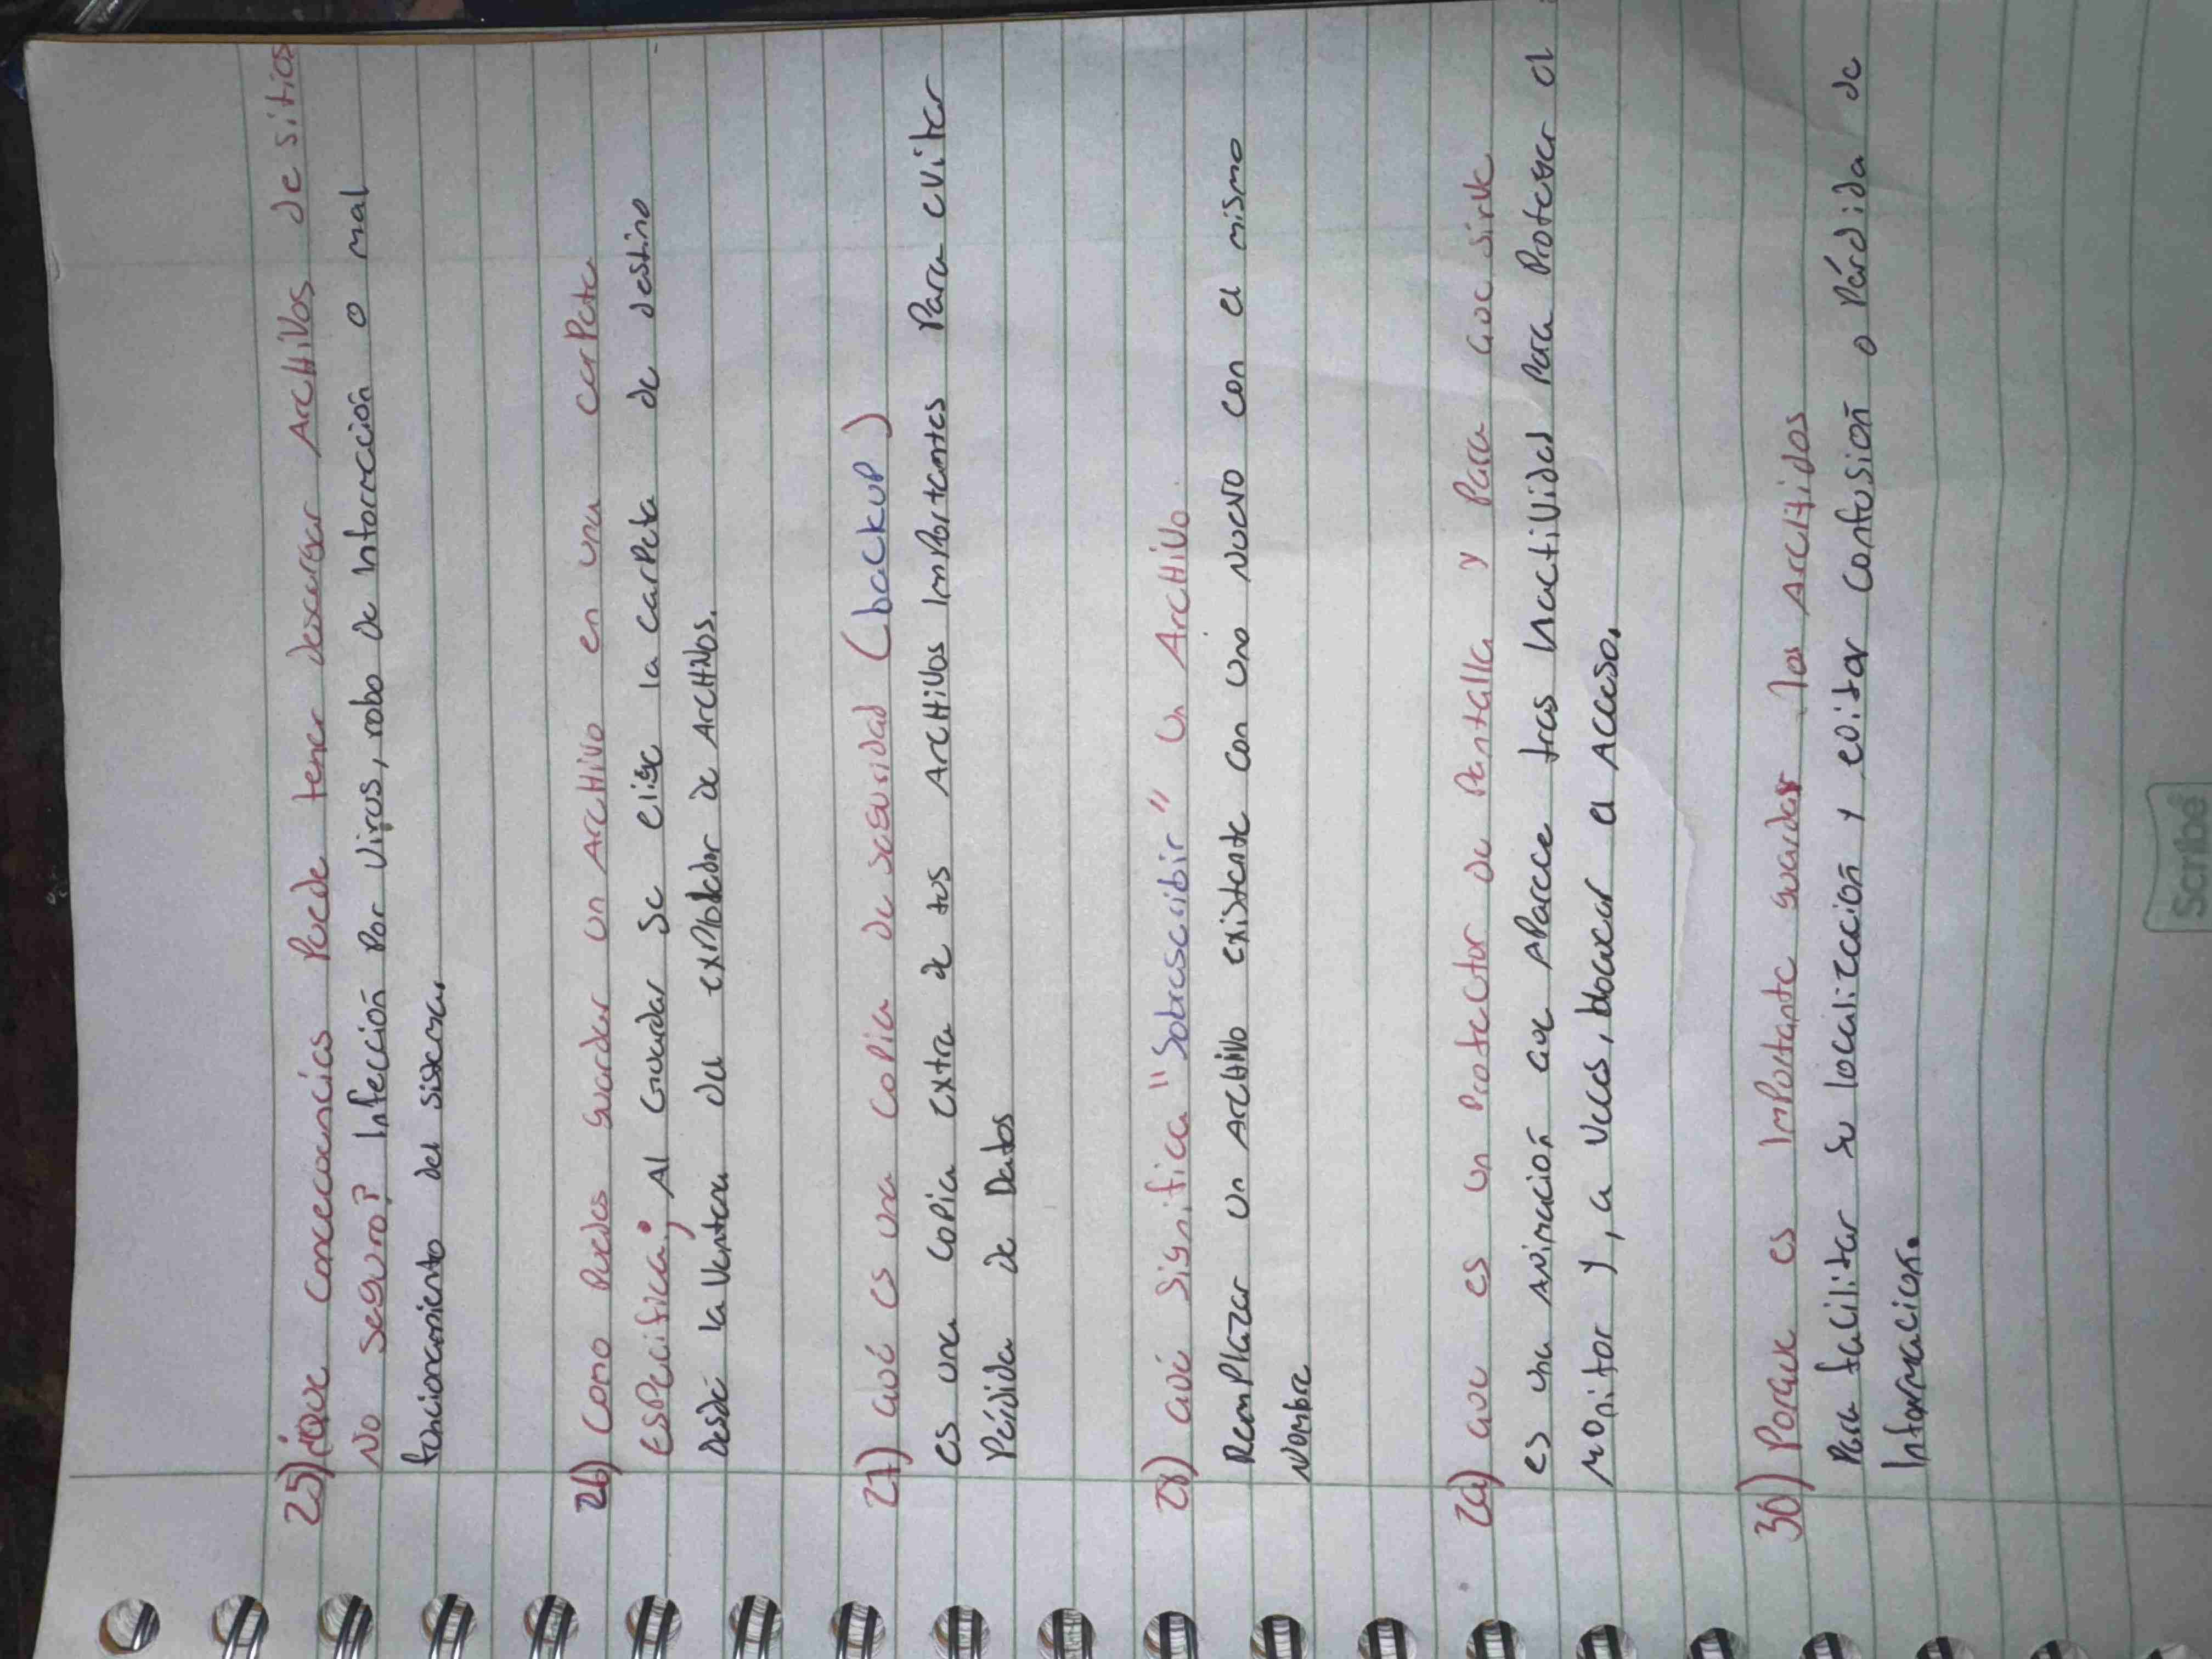 25) ¿que concecuancias Puede tener descargar ArcHiVos de sitios
No seguro? Infección Por Virus, robo de Informcción o mal
foncionamiento del sistema.
26) Como Puedes guardar un ArcHivo en una carPeta
EsPecifica; Al Guardar Se elige la carPeta de destino
Desde la Ventana del exPlolador de ArcHivos.
27) Qué es una CoPia de seguridad (backUP)
es una CoPia extra de tus ArcHiVos ImPortantes Para eVitar
Pérdida de Datos
28) Qué Significa "Sobrescribir" Un ArcHiVo.
RemPlazar Un ArcHivo existente Con uno Nuevo con el mismo
Nombre
29) Que es un Protector de Pantalla y Para Que sirve
es una Animación Que APArece tras InactiVidad Para Proteger el
monitor y, a Veces, bloquear el Acceso.
30) Porque es ImPortante guardar los ArcHidos
Para facilitar su localización y evitar confusión o Párdida de
Información.
Scribe